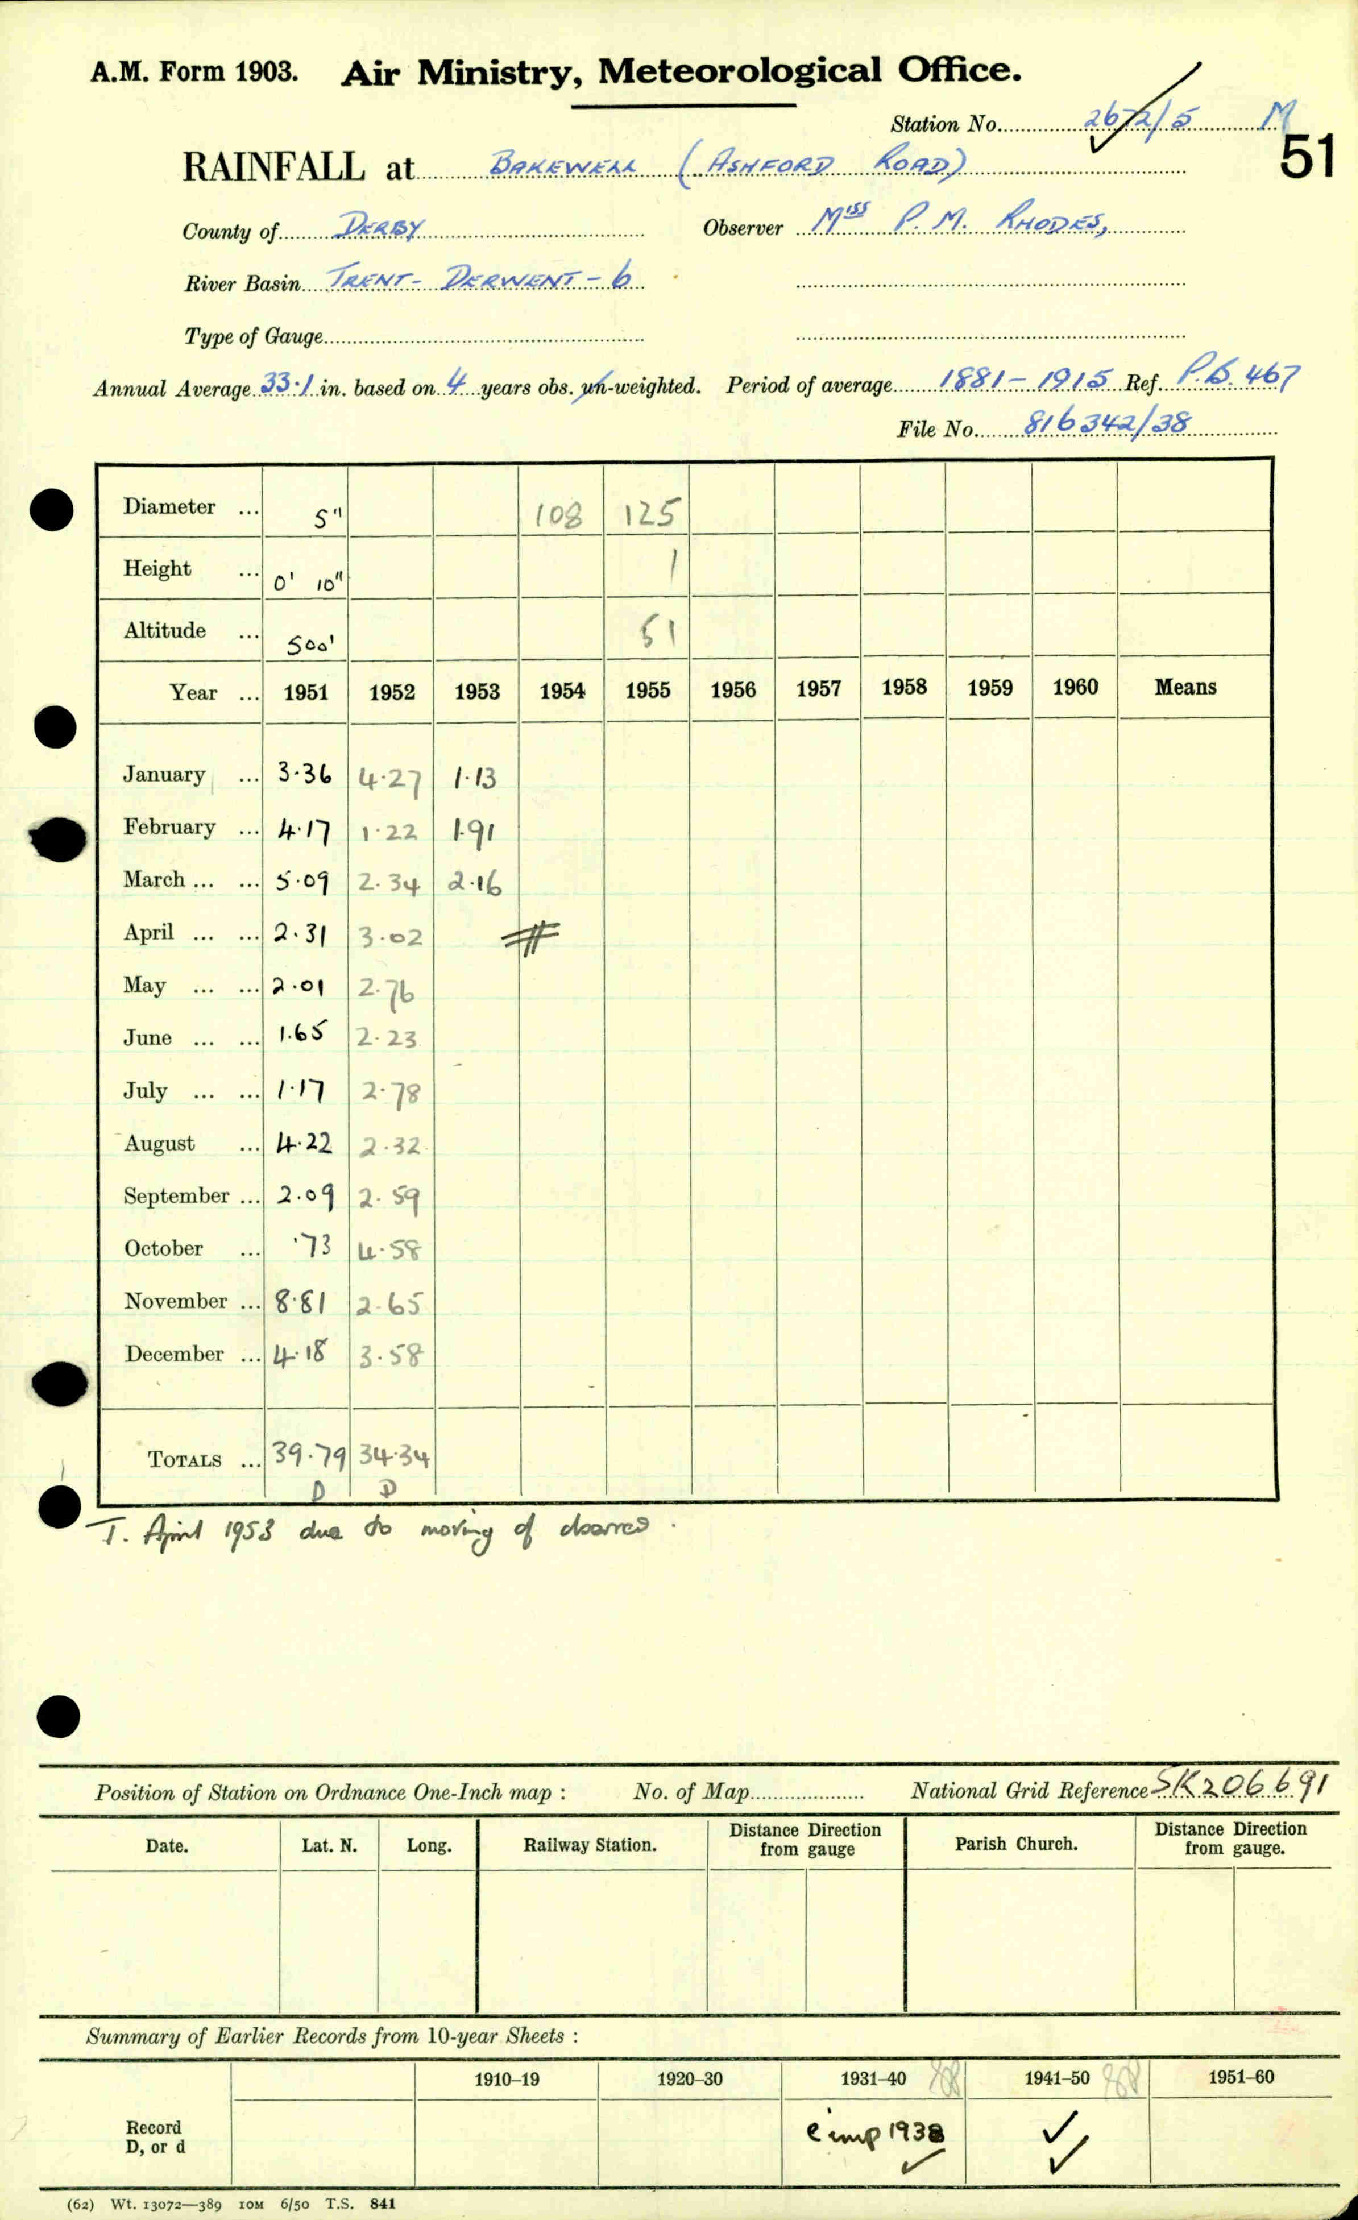 A.M. Form 1903. Air Ministry, Meteorological Office.
Station No. 2672/5 M
51
RAINFALL at BAKEWELL (ASHFORD ROAD)
County of DERBY Observer Miss P. M. RHODES,
River Basin TRENT - DERWENT - 6
Type of Gauge
Annual Average 33.1 in. based on 4 years obs. un-weighted. Period of average 1881 - 1915 Ref. P.B. 467
File No. 816342/38
Diameter ... 5" 108 125
Height ... 0' 10" 1
Altitude ... 500' 51
Year ... 1951 1952 1953 1954 1955 1956 1957 1958 1959 1960 Means
January ... 3.36 4.27 1.13
February ... 4.17 1.22 1.91
March ... ... 5.09 2.34 2.16
April ... ... 2.31 3.02
May ... ... 2.01 2.76
June ... ... 1.65 2.23
July ... ... 1.17 2.78
August ... 4.22 2.32
September ... 2.09 2.59
October ... .73 4.58
November ... 8.81 2.65
December ... 4.18 3.58
TOTALS ... 39.79 34.34
D D
T. April 1953 due to moving of
Position of Station on Ordnance One-Inch map : No. of Map National Grid Reference SK206691
Date. Lat. N. Long. Railway Station. Distance Direction from gauge Parish Church. Distance Direction from gauge.
Summary of Earlier Records from 10-year Sheets :
1910–19 1920–30 1931–40 1941–50 1951–60
Record
D, or d
1938
(62) Wt. 13072—389 10M 6/50 T.S. 841